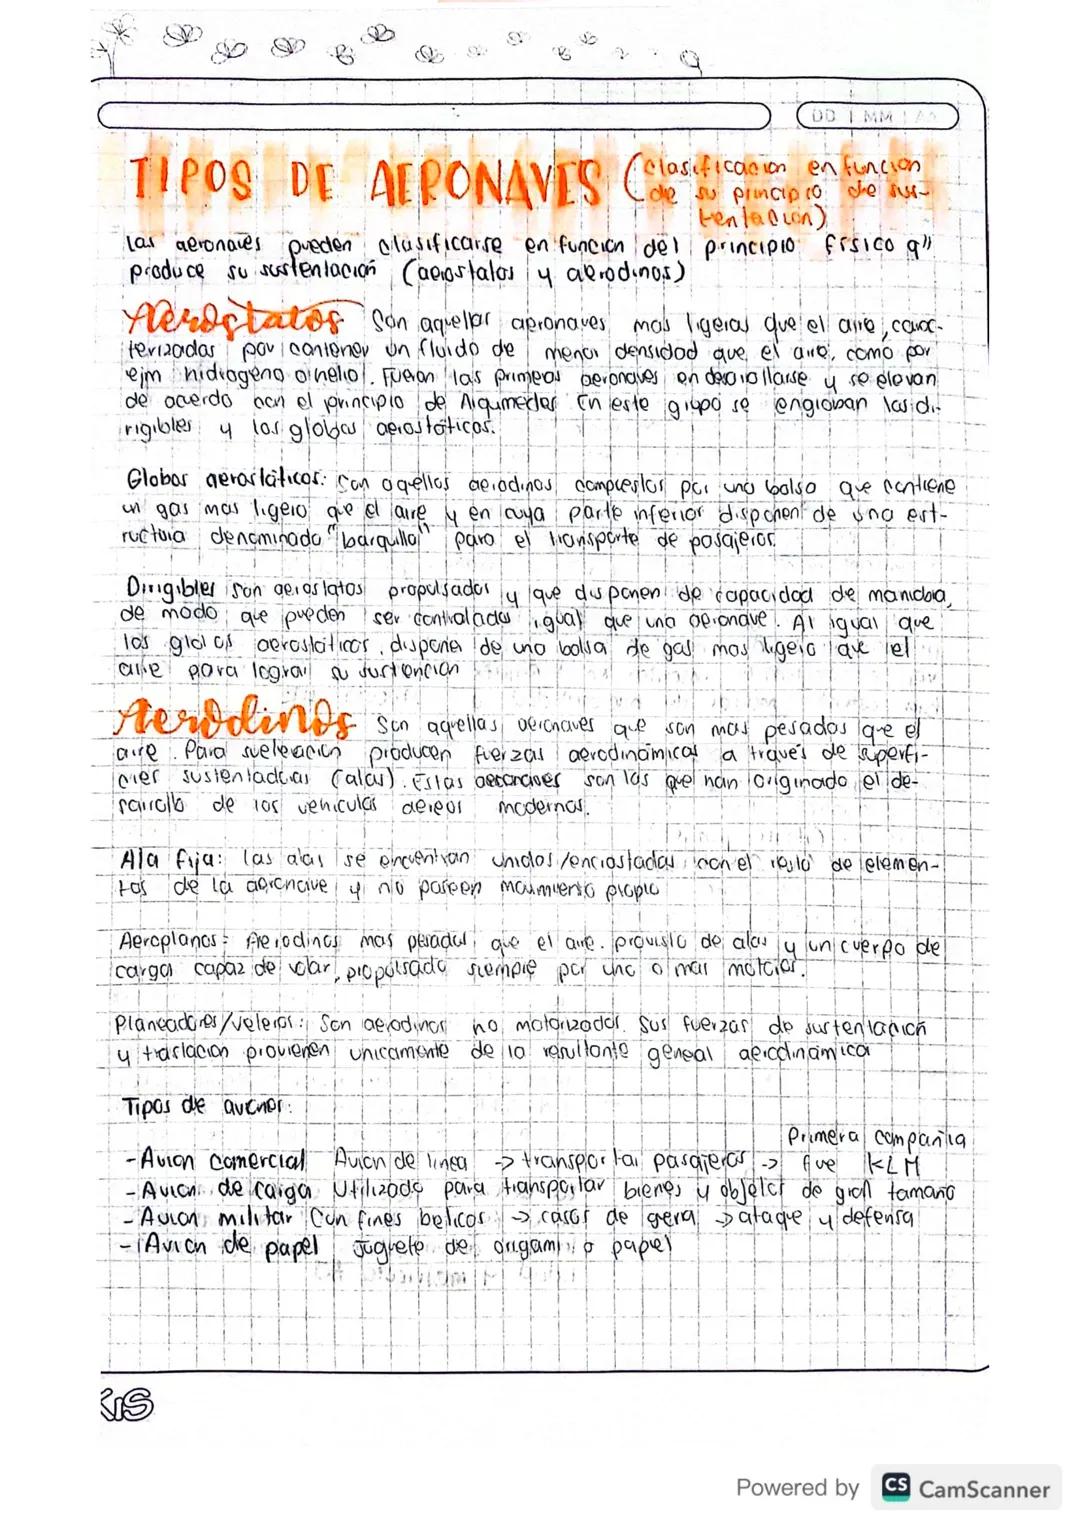 DD | MM | AA
TIPOS DE AERONAVES (clasificacion en funcion
de su principio de sus-
tentacion)
las aeronaves pueden clasificarse en funcion del principio fisico q"
produce su sustentación (aerostatos y aerodinos)
Aerostatos Son aquellas aeronaves mas ligeras que el aire, carac-
terizadas por contener un fluido de menor densidad que el aire, como por
ejm hidrogeno o helio. Fueron las primeras aeronaves en desarrollarse y se elevan
de acuerdo con el principio de Arqumedes En este grupo se engloban las di-
rigibles y los globos aerostáticos.
Globos aerostáticos: Son aquellos aerodinos compuestos por una bolsa que contiene
un gas mas ligero que el aire y en cuya parte inferior disponen de una est-
ructura denominada "barquilla" para el transporte de pasajeros
Dirigibles son aerostatos propulsados y que disponen de capacidad de maniobra,
de modo que pueden ser controlados igual que una aeronave. Al igual que
los globos aerostáticos, dispone de una bolsa de gas mas ligero que el
aire para lograr su sustencion
Aerodinos Son aquellas aeronaves que son mas pesados que el
aire. Para su elevacion producen fuerzas aerodinámicas a través de superfi-
cies sustentadoras (alas). Estas aeronaves son las que han originado el de-
sarrollo de los vehiculos aereos modernos.
Ala fija: las alas se encuentran unidos/encrostadas con el resto de elemen-
tos de la aeronave y no poseen movimiento propio
Aeroplanos: Aerodinos mas pesados que el aire. provisto de alas y un cuerpo de
carga capaz de volar, propulsado siempre por uno o mas motores.
Planeadores/veleros: Son aerodinos no motorizados. Sus fuerzas de sustentacion
y traslacion provienen unicamente de la resultante general aerodinámica
Tipos de aviones:
Primera compañia
-Avion comercial Avion de linea -> transportar pasajeros -> fue KLM
-Avion de carga Utilizado para transportar bienes y objetos de gran tamaño
-Avion militar Con fines belicos -> casos de gerra -> ataque y defensa
-Avion de papel Juguete de origami o papel
KIS
Powered by CS CamScanner